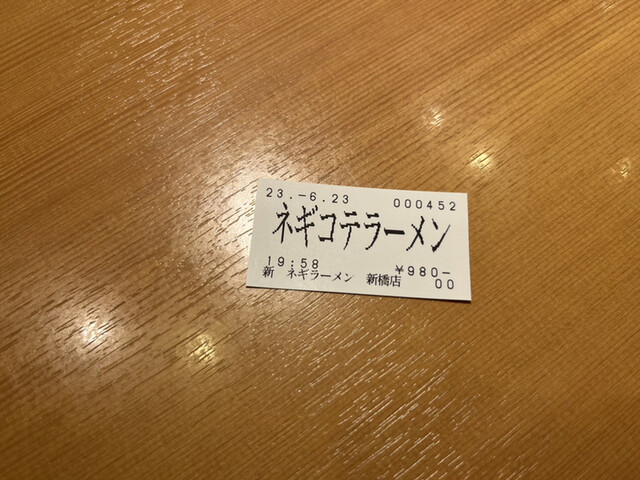 23.-6.23 000452
ネギコテラーメン
19:58 ¥980-
新 ネギラーメン 新橋店 00